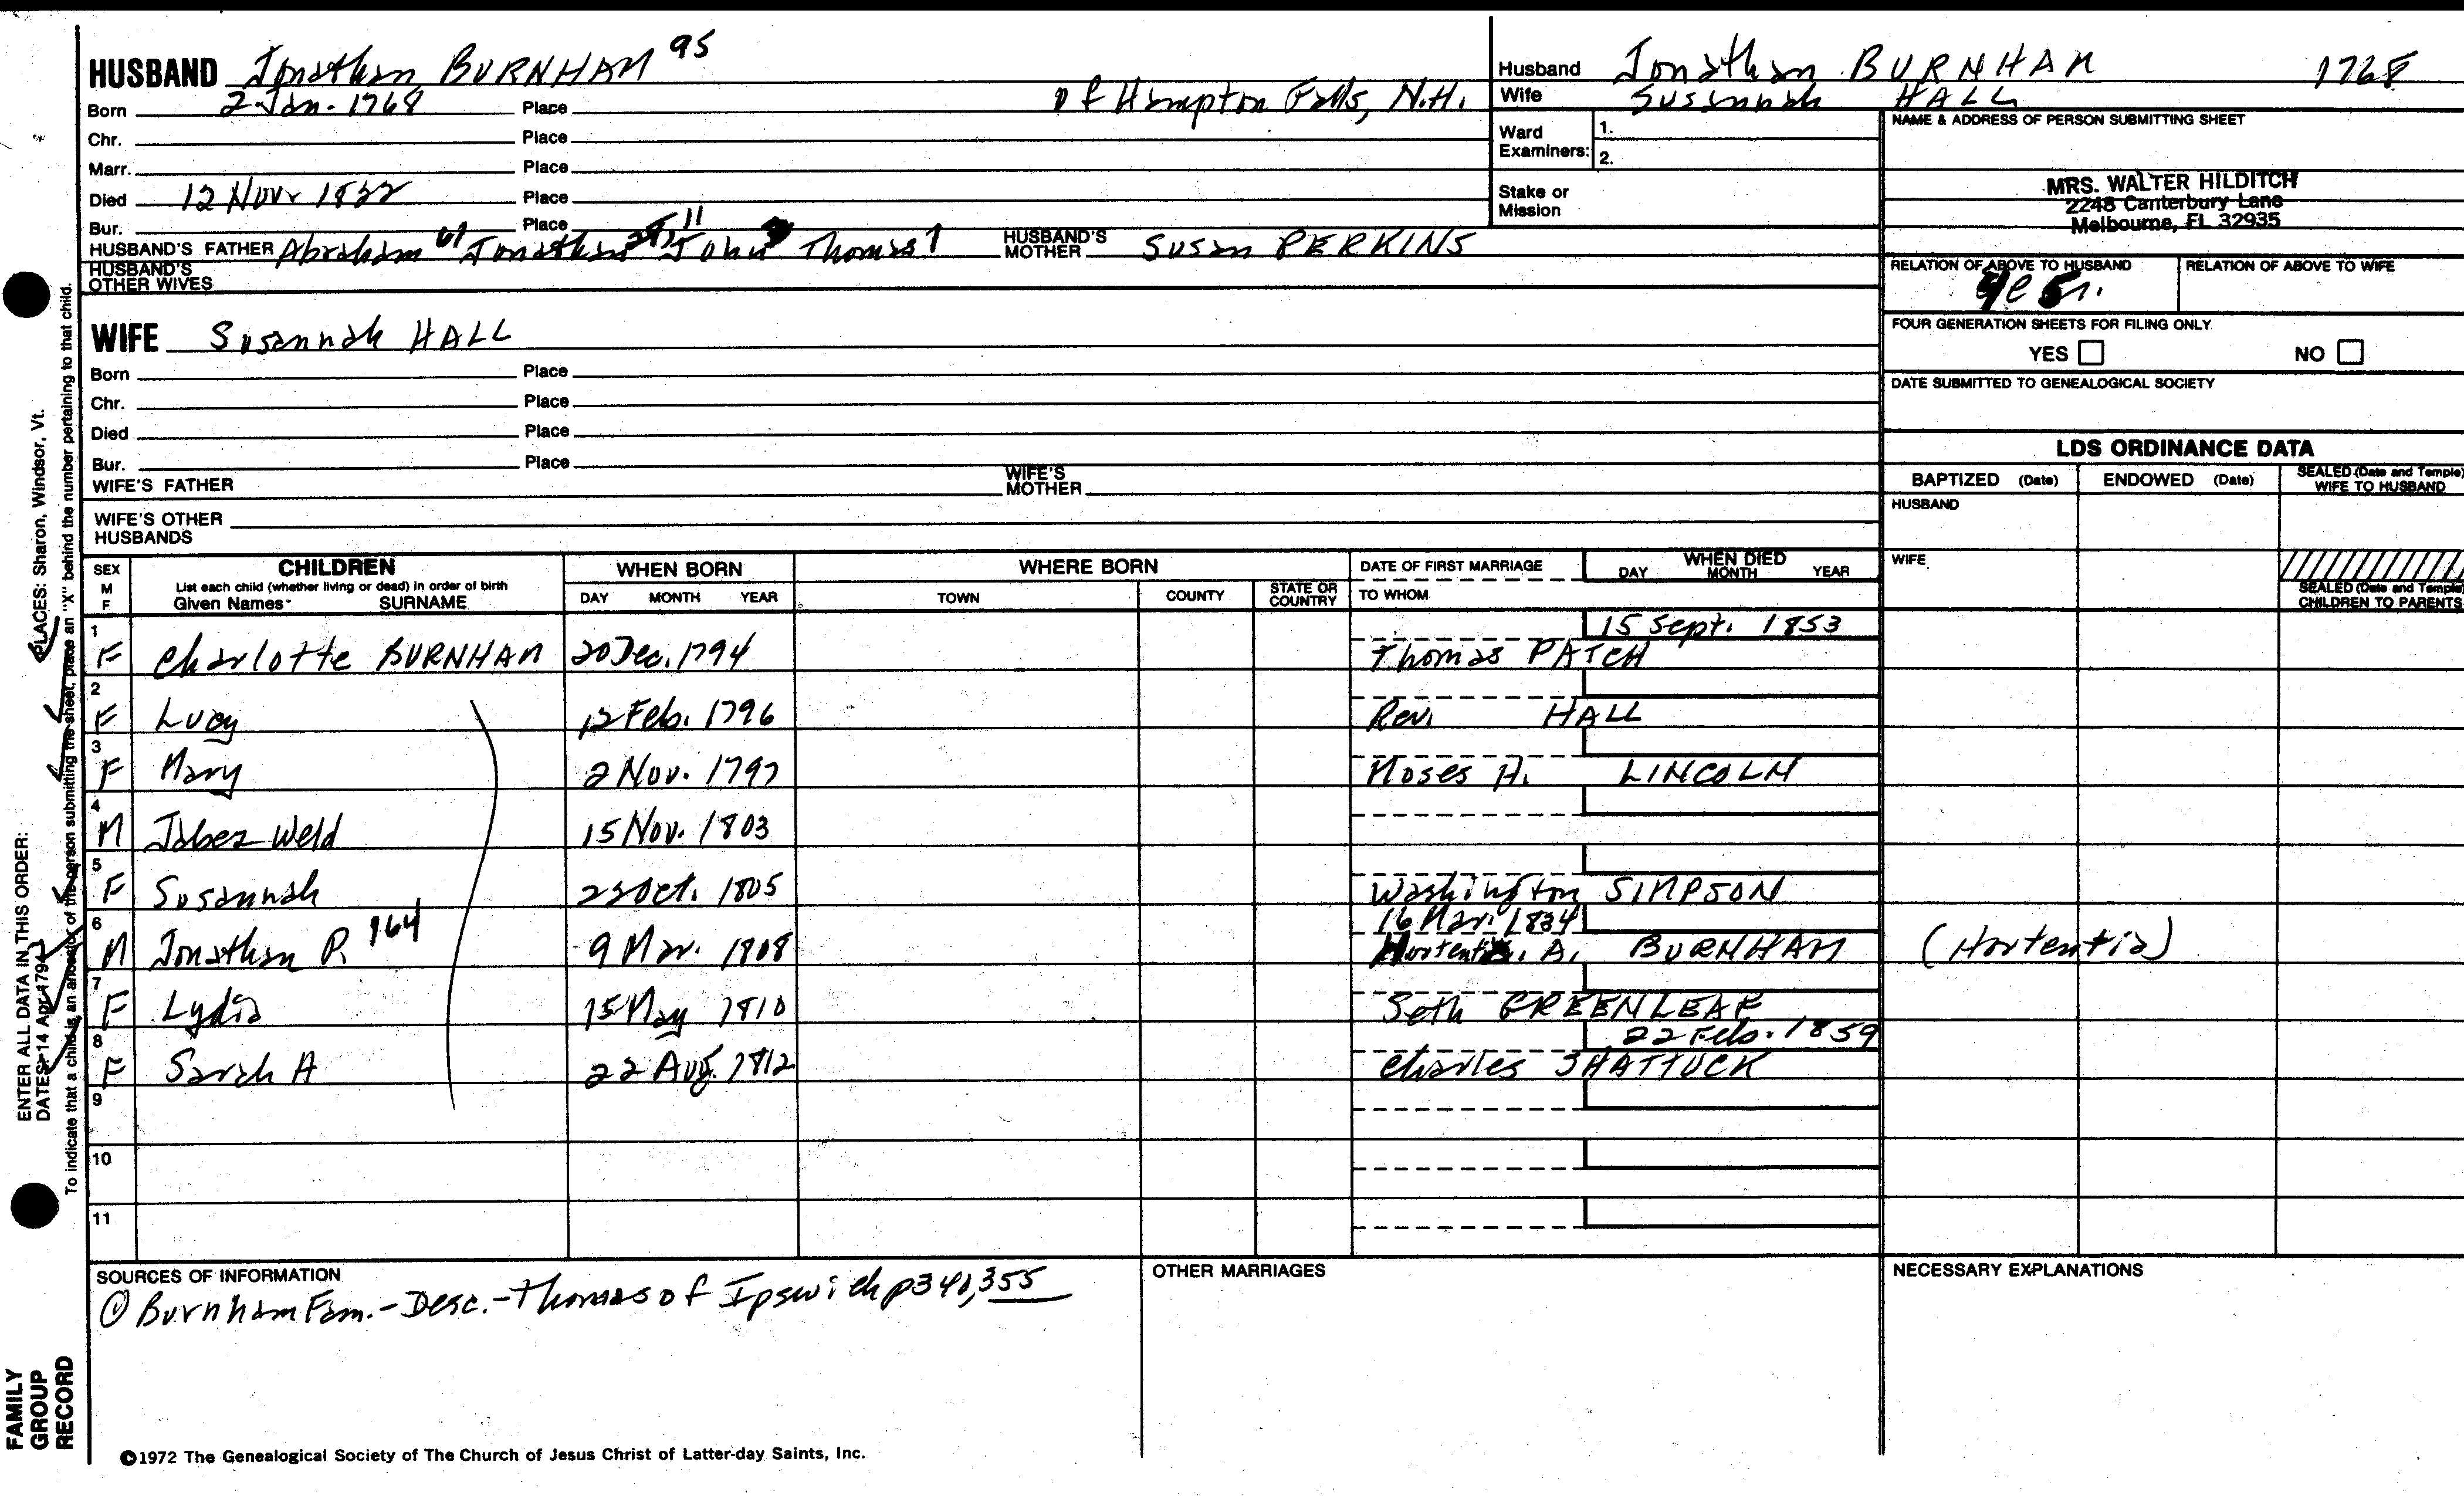 HUSBAND Jonathan BURNHAM 95
Born 2 Jan. 1768 Place of Hampton Falls, N.H.
Chr. Place
Marr. Place
Died 12 Nov. Place
Bur. Place
HUSBAND'S FATHER Abraham Jonathan John Thomas 1 HUSBAND'S MOTHER Susan PERKINS
HUSBAND'S OTHER WIVES
WIFE Susannah HALL
Born Place
Chr. Place
Died Place
Bur. Place
WIFE'S FATHER WIFE'S MOTHER
WIFE'S OTHER HUSBANDS
Husband Jonathan BURNHAM 1768
Wife Susannah HALL
Ward Examiners: 1.
2.
Stake or Mission
NAME & ADDRESS OF PERSON SUBMITTING SHEET
MRS. WALTER HILDITCH
2248 Canterbury Lane
Melbourne, FL 32935
RELATION OF ABOVE TO HUSBAND RELATION OF ABOVE TO WIFE
FOUR GENERATION SHEETS FOR FILING ONLY
YES NO
DATE SUBMITTED TO GENEALOGICAL SOCIETY
LDS ORDINANCE DATA
BAPTIZED (Date) ENDOWED (Date) SEALED (Date and Temple) WIFE TO HUSBAND
HUSBAND
WIFE
SEALED (Date and Temple) CHILDREN TO PARENTS
SEX M F CHILDREN WHEN BORN WHERE BORN DATE OF FIRST MARRIAGE WHEN DIED
List each child (whether living or dead) in order of birth
Given Names SURNAME DAY MONTH YEAR TOWN COUNTY STATE OR COUNTRY TO WHOM DAY MONTH YEAR
1 15 Sept. 1853
F Charlotte BURNHAM 20 Dec. 1794 Thomas PATCH
2
F Lucy 12 Feb. 1796 Rev. HALL
3
F Mary 2 Nov. 1797 Moses A. LINCOLN
4
M Jabez Weld 15 Nov. 1803
5
F Susannah Oct. 1805 Washington SIMPSON
6 16 Mar. 1834
M Jonathan P. 164 9 Mar. 1808 A. BURNHAM (Hortentia)
7
F Lydia 15 May 1810 Seth GREENLEAF
8 22 Feb. 1859
F Sarah A 22 Aug. 1812 Charles SHATTUCK
9
10
11
SOURCES OF INFORMATION
① Burnham Fam. - Desc. - Thomas of Ipswich p340,355
OTHER MARRIAGES
NECESSARY EXPLANATIONS
©1972 The Genealogical Society of The Church of Jesus Christ of Latter-day Saints, Inc.
FAMILY GROUP RECORD
ENTER ALL DATA IN THIS ORDER:
DATES: 14 Apr 1794
PLACES: Sharon, Windsor, Vt.
To indicate that a child is an ancestor of the person submitting the sheet, place an "X" behind the number pertaining to that child.